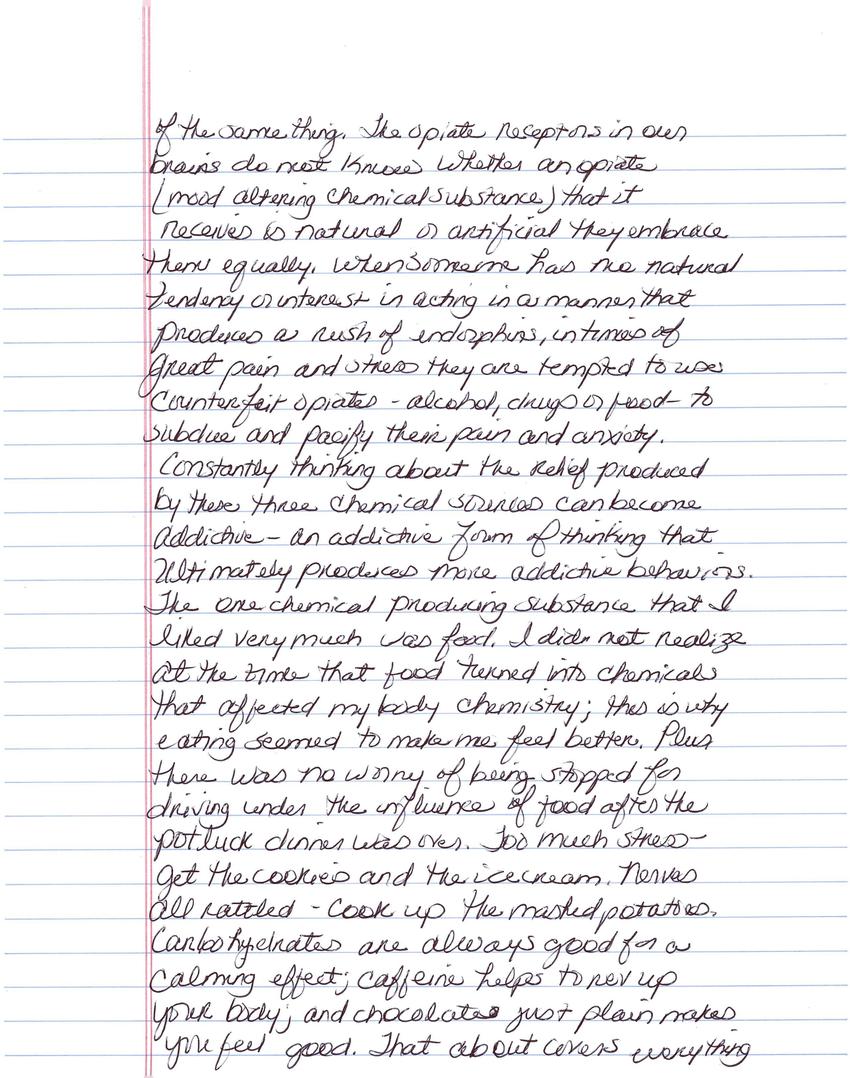 of the same thing. The opiate receptors in our
brains do not know whether an opiate
(mood altering chemical substance) that it
receives is natural or artificial they embrace
them equally. When someone has no natural
tendency or interest in acting in a manner that
produces a rush of endorphins, in times of
great pain and stress they are tempted to use
counterfeit opiates - alcohol, drugs or food - to
subdue and pacify their pain and anxiety.
Constantly thinking about the relief produced
by these three chemical sources can become
addictive - an addictive form of thinking that
ultimately produces more addictive behaviors.
The one chemical producing substance that I
liked very much was food. I did not realize
at the time that food turned into chemicals
that affected my body chemistry; this is why
eating seemed to make me feel better. Plus
there was no worry of being stopped for
driving under the influence of food after the
potluck dinner was over. Too much stress -
get the cookies and the icecream. Nerves
all rattled - cook up the mashed potatoes.
Carbohydrates are always good for a
calming effect; caffeine helps to rev up
your body; and chocolate just plain makes
you feel good. That about covers everything